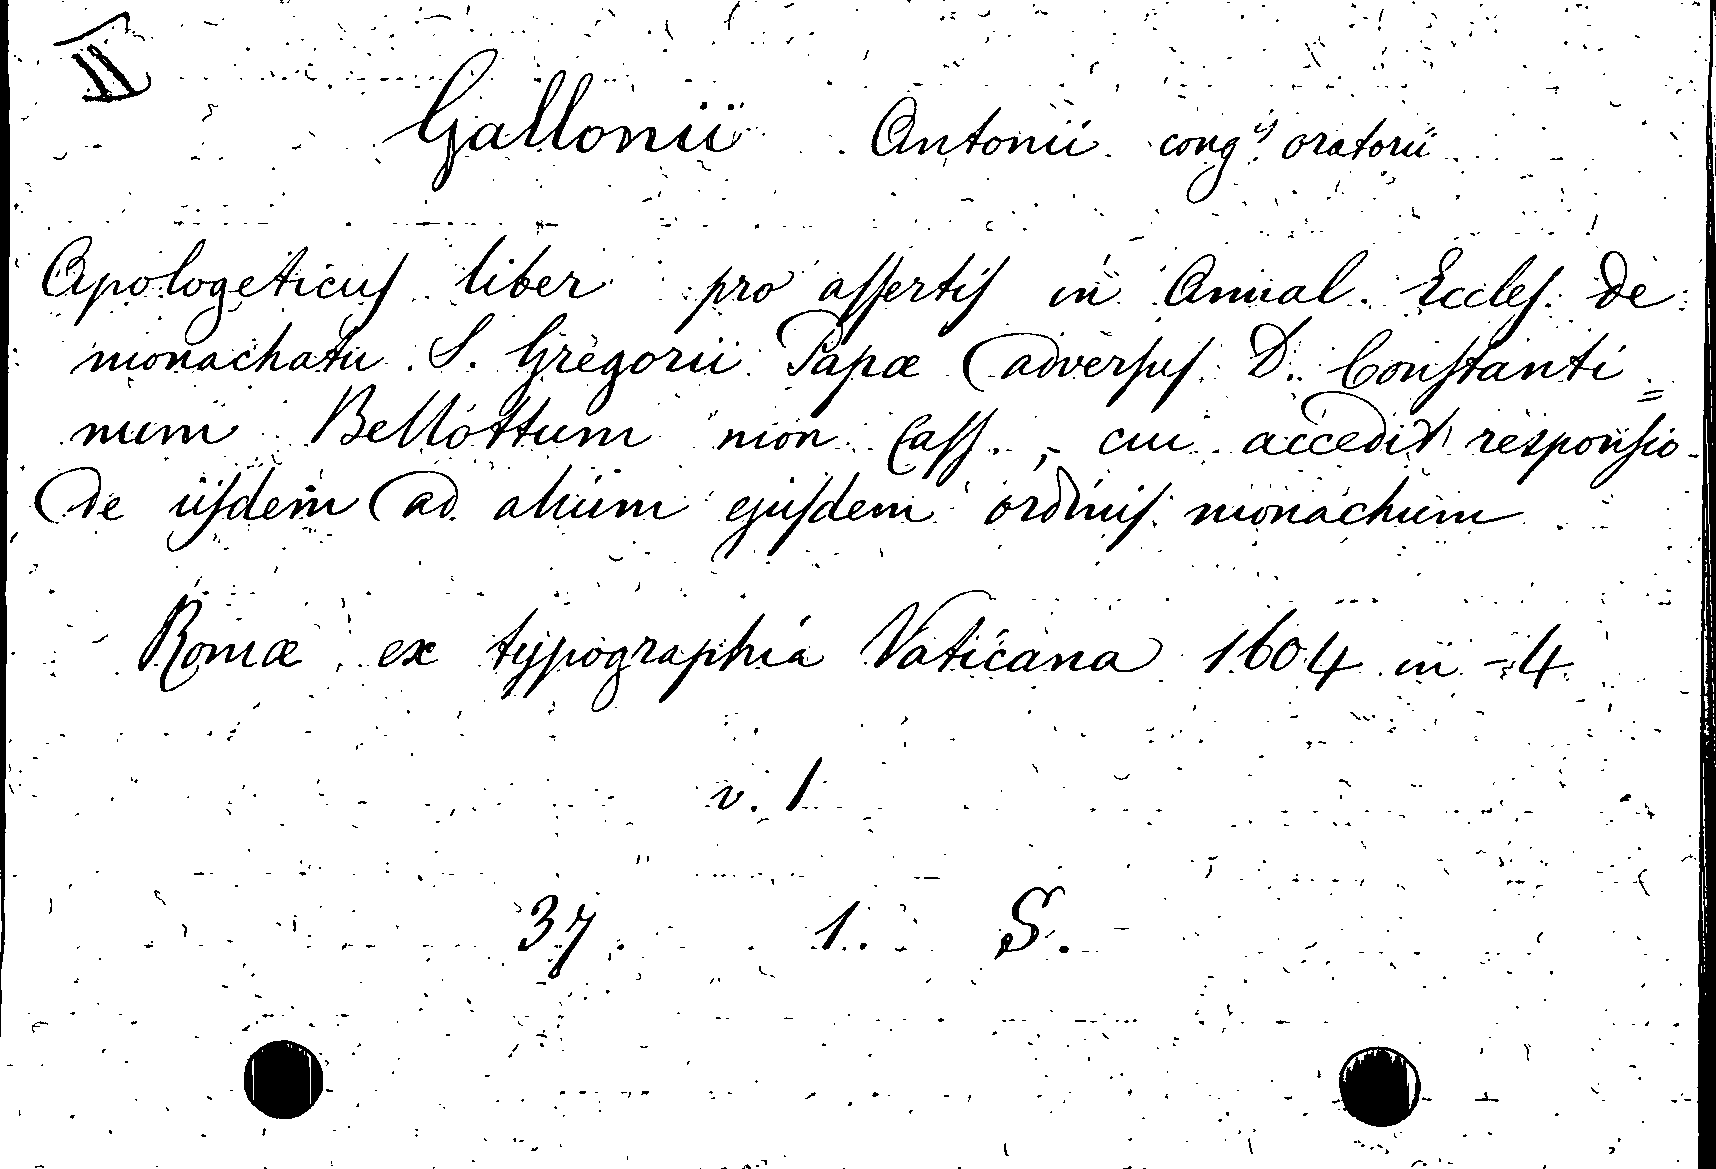 II
Gallonii Antonii cong.is oratorii
Apologeticus liber pro assertis in Annal. Eccles. de
monachatu S. Gregorii Papæ adversus D. Constanti=
num Bellottum mon. Cass., cui accedit responsio
de iisdem ad alium ejusdem ordinis monachum
Romæ ex typographia Vaticana 1604 in-4
v. 1
37. 1. S.